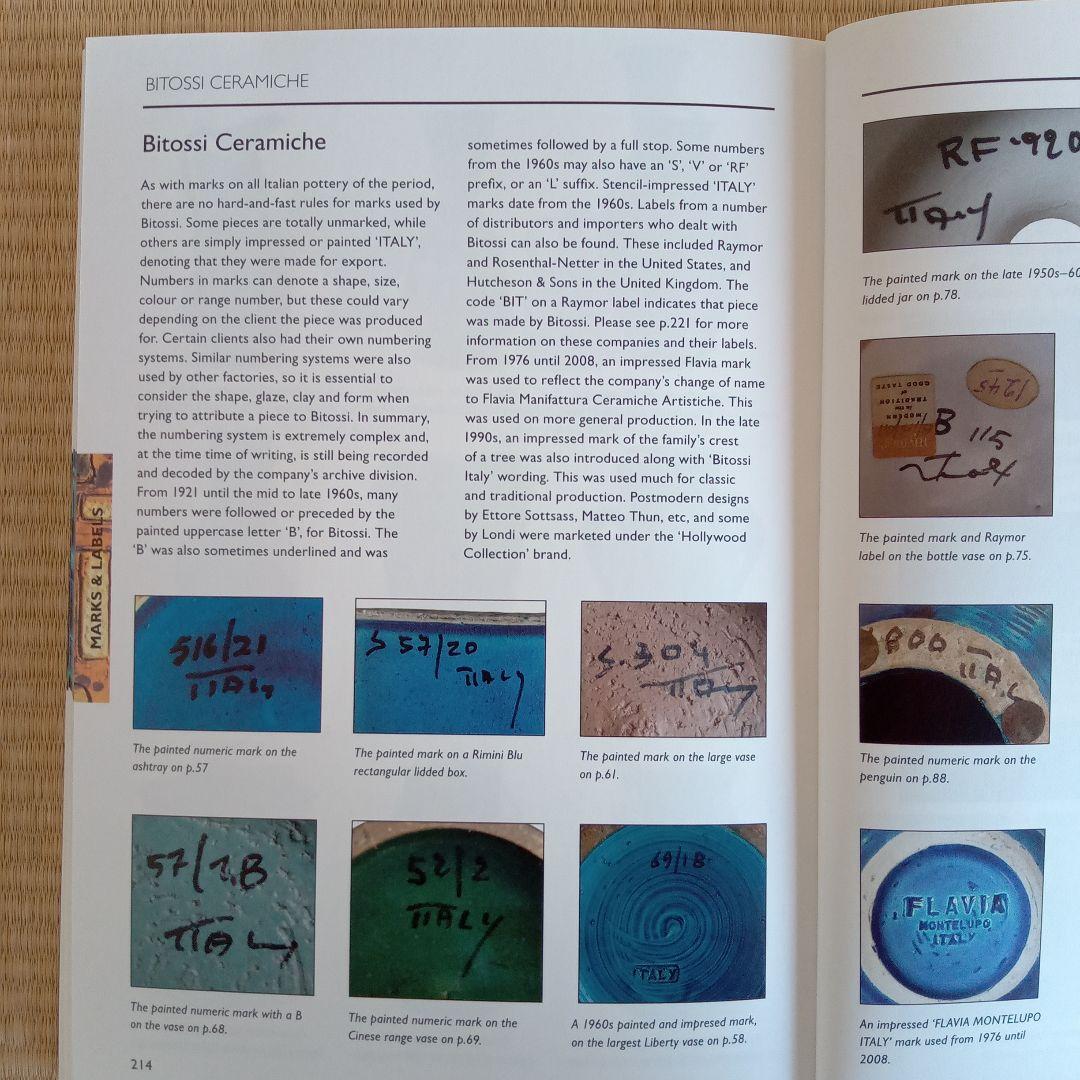 BITOSSI CERAMICHE
Bitossi Ceramiche
As with marks on all Italian pottery of the period,
there are no hard-and-fast rules for marks used by
Bitossi. Some pieces are totally unmarked, while
others are simply impressed or painted ‘ITALY’,
denoting that they were made for export.
Numbers in marks can denote a shape, size,
colour or range number, but these could vary
depending on the client the piece was produced
for. Certain clients also had their own numbering
systems. Similar numbering systems were also
used by other factories, so it is essential to
consider the shape, glaze, clay and form when
trying to attribute a piece to Bitossi. In summary,
the numbering system is extremely complex and,
at the time time of writing, is still being recorded
and decoded by the company’s archive division.
From 1921 until the mid to late 1960s, many
numbers were followed or preceded by the
painted uppercase letter ‘B’, for Bitossi. The
‘B’ was also sometimes underlined and was
sometimes followed by a full stop. Some numbers
from the 1960s may also have an ‘S’, ‘V’ or ‘RF’
prefix, or an ‘L’ suffix. Stencil-impressed ‘ITALY’
marks date from the 1960s. Labels from a number
of distributors and importers who dealt with
Bitossi can also be found. These included Raymor
and Rosenthal-Netter in the United States, and
Hutcheson & Sons in the United Kingdom. The
code ‘BIT’ on a Raymor label indicates that piece
was made by Bitossi. Please see p.221 for more
information on these companies and their labels.
From 1976 until 2008, an impressed Flavia mark
was used to reflect the company’s change of name
to Flavia Manifattura Ceramiche Artistiche. This
was used on more general production. In the late
1990s, an impressed mark of the family’s crest
of a tree was also introduced along with ‘Bitossi
Italy’ wording. This was used much for classic
and traditional production. Postmodern designs
by Ettore Sottsass, Matteo Thun, etc, and some
by Londi were marketed under the ‘Hollywood
Collection’ brand.
MARKS & LABELS
516/21
ITALY
The painted numeric mark on the
ashtray on p.57
S 57/20
ITALY
The painted mark on a Rimini Blu
rectangular lidded box.
S. 304
ITALY
The painted mark on the large vase
on p.61.
57/2 B
ITALY
The painted numeric mark with a B
on the vase on p.68.
52/2
ITALY
The painted numeric mark on the
Cinese range vase on p.69.
69/1B
ITALY
A 1960s painted and impresed mark,
on the largest Liberty vase on p.58.
214
RF-920
ITALY
The painted mark on the late 1950s–60
lidded jar on p.78.
1245
MODERN
in the
TRADITION
of
GOOD TASTE
B
115
Italy
The painted mark and Raymor
label on the bottle vase on p.75.
800 ITALY
The painted numeric mark on the
penguin on p.88.
FLAVIA
MONTELUPO
ITALY
An impressed ‘FLAVIA MONTELUPO
ITALY’ mark used from 1976 until
2008.